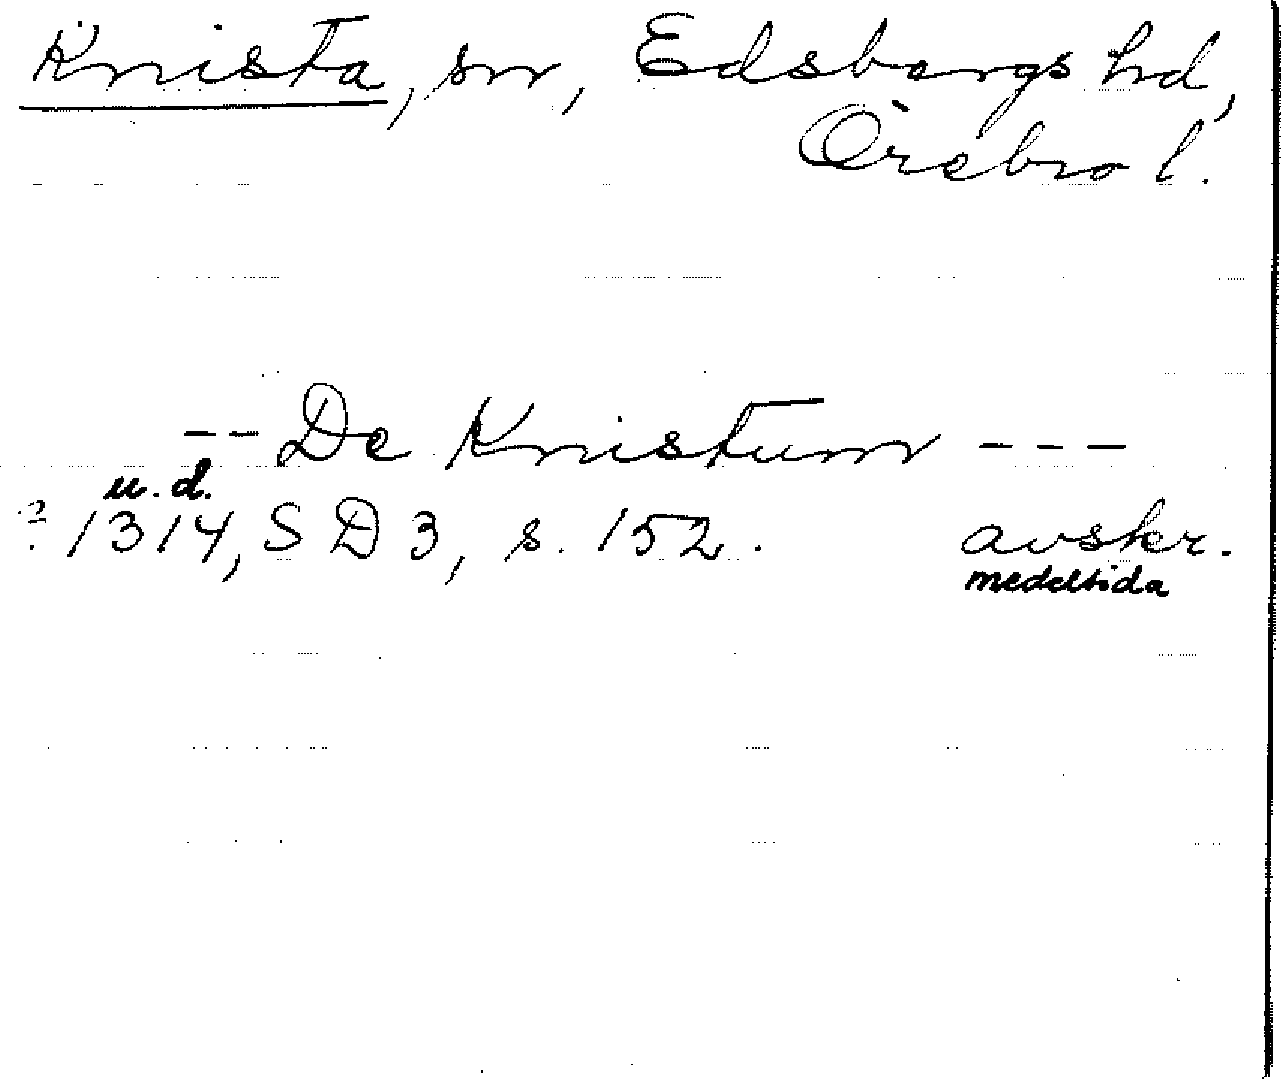 Knista, sn, Edsbergs hd,
Örebro l.
-- De Knistum ---
u. d.
? 1314, SD 3, s. 152. avskr.
medeltida